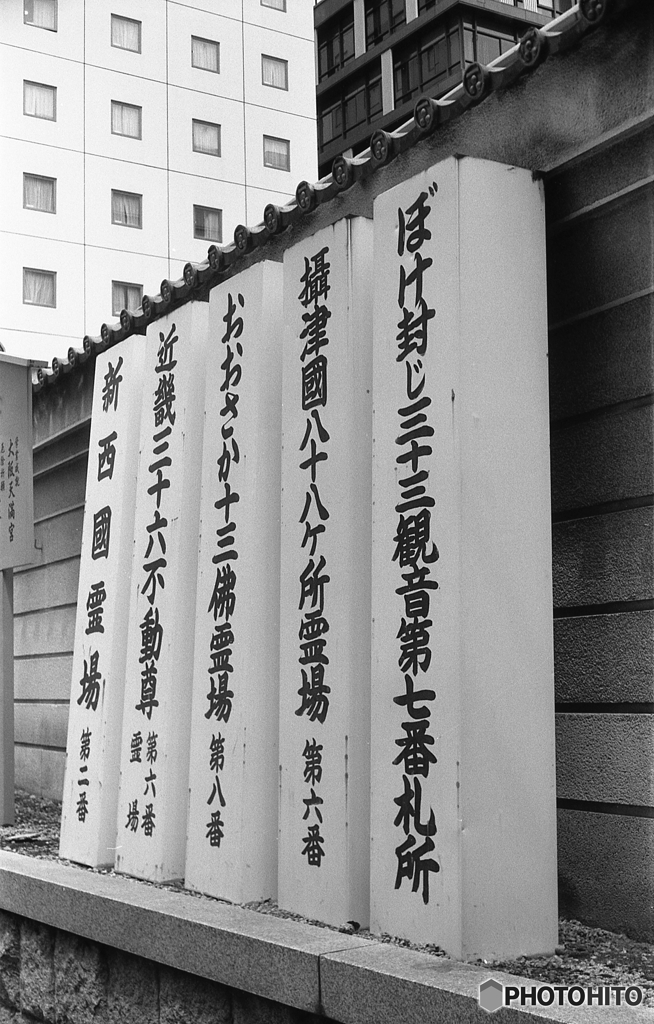 ぼけ封じ三十三観音第七番札所
攝津國八十八ケ所霊場 第六番
おおさか十三佛霊場 第八番
近畿三十六不動尊霊場 第六番
新西國霊場 第二番
大阪天満宮
PHOTOHITO